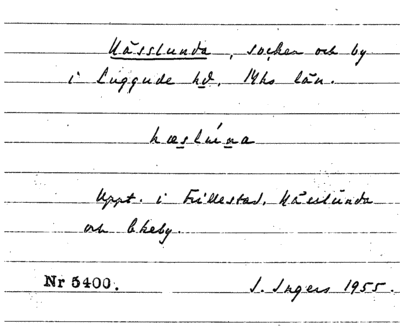 Kåsslunda, socken och by
i Luggude hd, Mhs län.
kæslúna
Uppt. i Frillestad, Kåsslunda
och Ekeby.
Nr 5400. I. Ingers 1955.